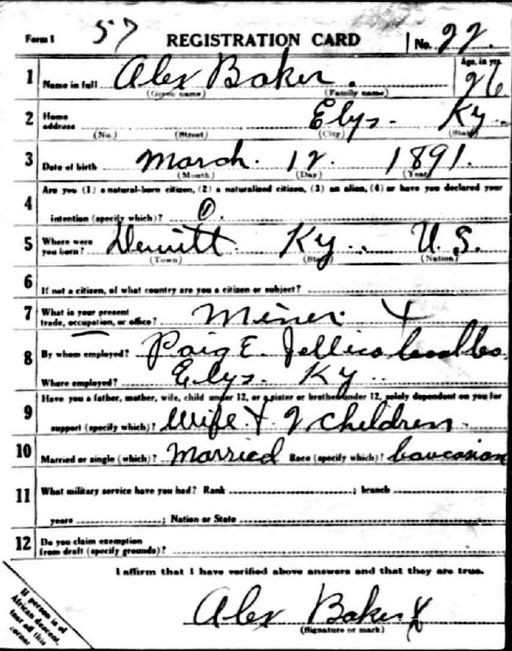 Form 1 57 REGISTRATION CARD No. 22.
1 Name in full Alex Baker. Age, in yrs. 26
(Given name) (Family name)
2 Home address Elys- Ky-
(No.) (Street) (City) (State)
3 Date of birth March. 12. 1891.
(Month) (Day) (Year)
4 Are you (1) a natural-born citizen, (2) a naturalized citizen, (3) an alien, (4) or have you declared your
intention (specify which)? 1.
5 Where were you born? Dewitt Ky.. U.S.
(Town) (State) (Nation)
6 If not a citizen, of what country are you a citizen or subject?
7 What is your present trade, occupation, or office? Miner.
8 By whom employed? Jellico Coal Co
Where employed? Elys. Ky..
9 Have you a father, mother, wife, child under 12, or a sister or brother under 12, solely dependent on you for
support (specify which)? Wife + 2 children.
10 Married or single (which)? Married Race (specify which)? Caucasian
11 What military service have you had? Rank ; branch ;
years ; Nation or State
12 Do you claim exemption from draft (specify grounds)?
I affirm that I have verified above answers and that they are true.
Alex Baker
(Signature or mark)
If person is of
African descent,
tear off this
corner